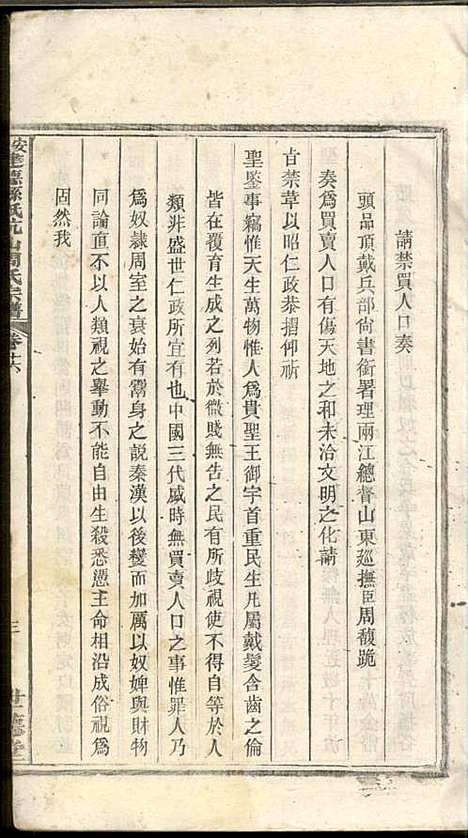 請禁買人口奏
頭品頂戴兵部尚書銜署理兩江總督山東巡撫臣周馥跪
奏爲買賣人口有傷天地之和未洽文明之化請
旨禁革以昭仁政恭摺仰祈
聖鑒事竊惟天生萬物惟人爲貴聖王御宇首重民生凡屬戴髮含齒之倫
皆在覆育生成之列若於微賤無告之民有所歧視使不得自等於人
類非盛世仁政所宜有也中國三代盛時無買賣人口之事惟罪人乃
爲奴隸周室之衰始有鬻身之說秦漢以後變而加厲以奴婢與財物
同論直不以人類視之舉動不能自由生殺悉憑主命相沿成俗視爲
固然我
建德縣紙坑山周氏宗譜
卷十六
三